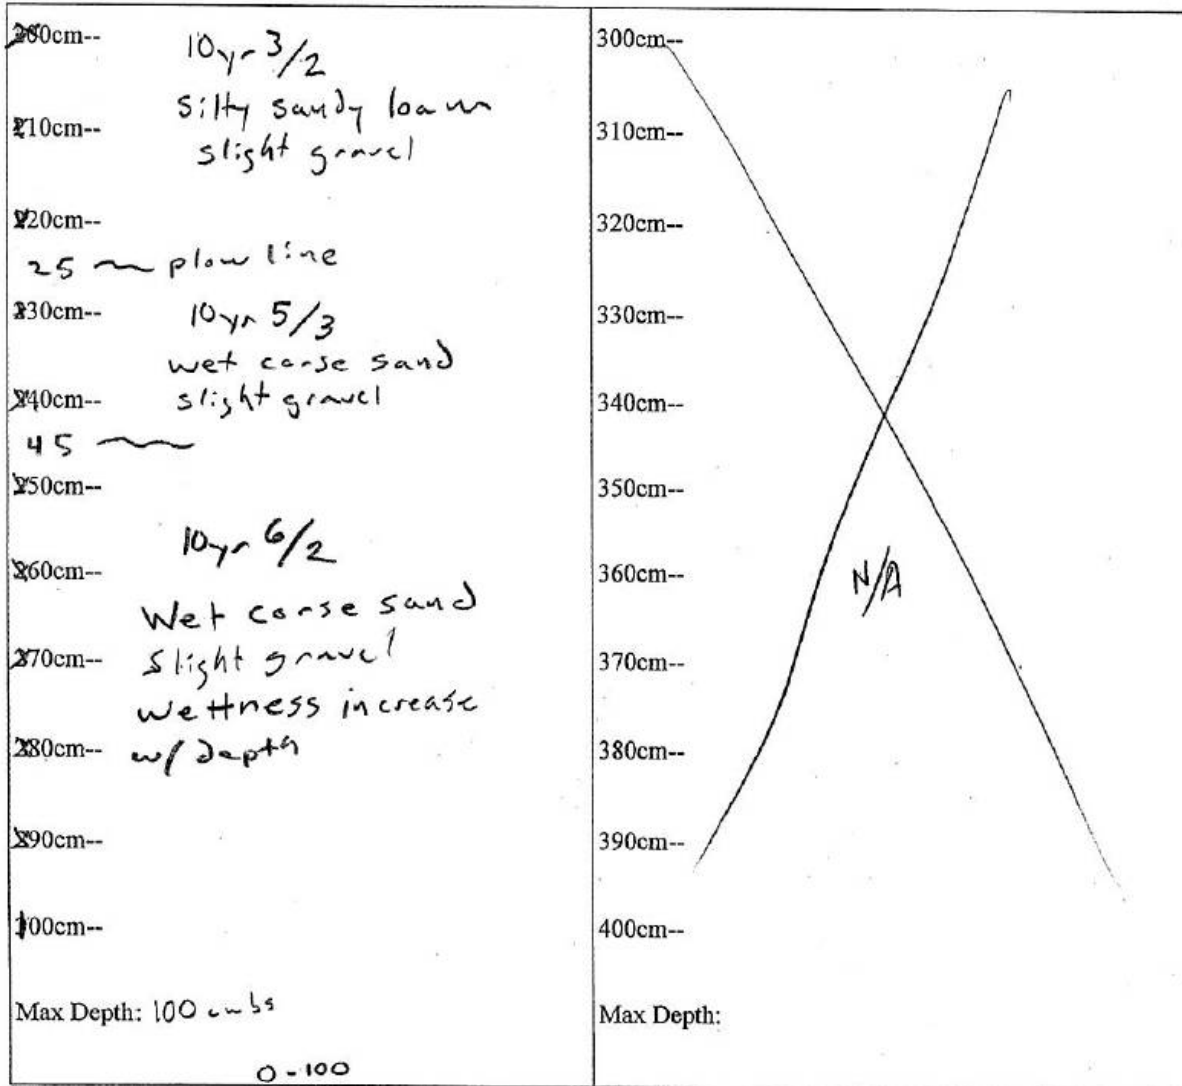 200cm--
10yr 3/2
silty sandy loam
210cm--
slight gravel
220cm--
25 ~ plow line
230cm--
10yr 5/3
wet corse sand
240cm--
slight gravel
45 ~
250cm--
10yr 6/2
260cm--
Wet corse sand
270cm--
slight gravel
wettness increase
280cm--
w/ depth
290cm--
100cm--
Max Depth: 100 cmbs
0-100
300cm--
310cm--
320cm--
330cm--
340cm--
350cm--
360cm--
N/A
370cm--
380cm--
390cm--
400cm--
Max Depth: